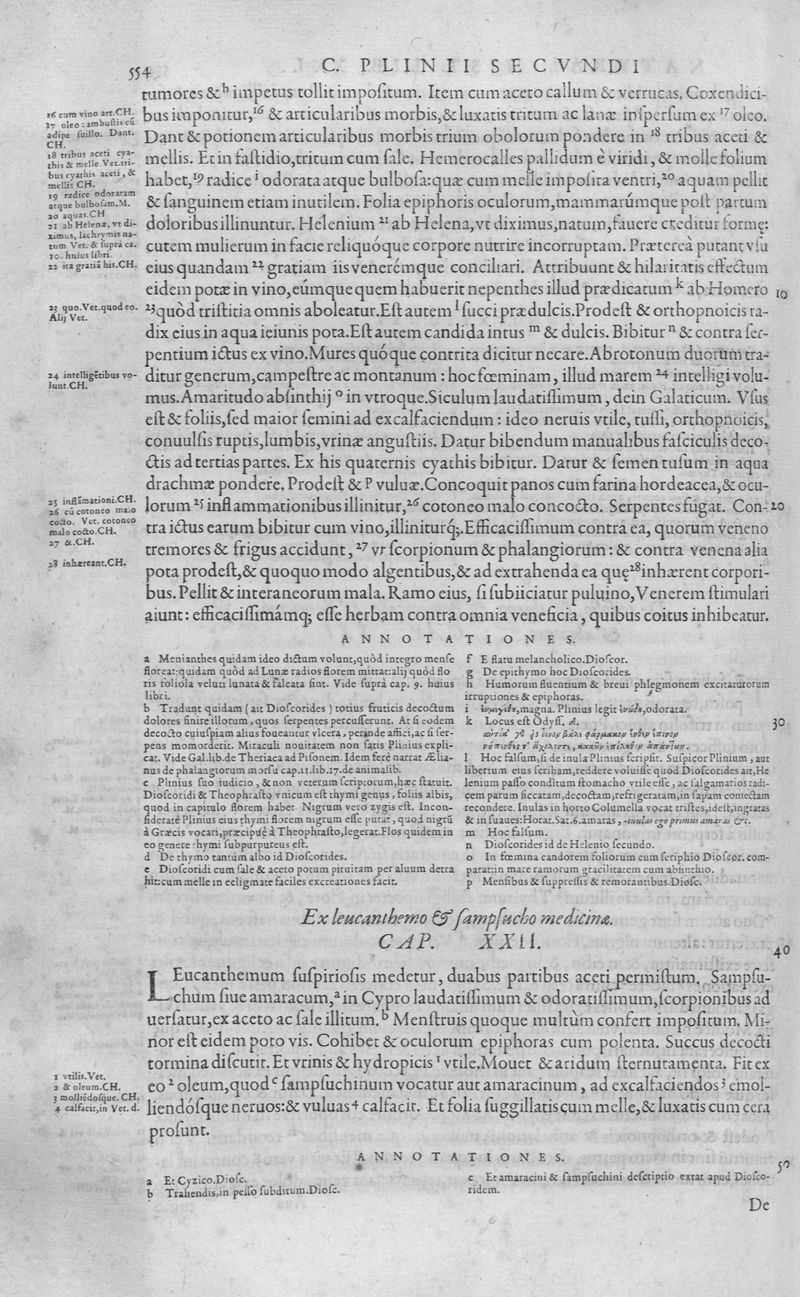 554
C. PLINII SECVNDI
tumores &h impetus tollit impositum. Item cum aceto callum & verrucas. Coxendici-
bus imponitur,16 & articularibus morbis,& luxatis tritum ac lanæ inspersum ex 17 oleo.
Dant & potionem articularibus morbis trium obolorum pondere in 18 tribus aceti &
mellis. Et in fastidio,tritum cum sale. Hemerocalles pallidum è viridi, & molle folium
habet,19 radice i odorata atque bulbosa:quæ cum melle imposita ventri,20 aquam pellit
& sanguinem etiam inutilem. Folia epiphoris oculorum,mammarúmque post partum
doloribus illinuntur. Helenium 21 ab Helena,vt diximus,natum,fauere creditur formę:
cutem mulierum in facie reliquóque corpore nutrire incorruptam. Prætereà putant vsu
eius quandam 22 gratiam iis venerémque conciliari. Attribuunt & hilaritatis effectum
eidem potæ in vino,eúmque quem habuerit nepenthes illud prædicatum k ab Homero
10
23 quòd tristitia omnis aboleatur. Est autem l succi prædulcis. Prodest & orthopnoicis ra-
dix eius in aqua ieiunis pota. Est autem candida intus m & dulcis. Bibitur n & contra ser-
pentium ictus ex vino. Mures quóque contrita dicitur necare. Abrotonum duorum tra-
ditur generum,campestre ac montanum : hoc fœminam, illud marem 24 intelligi volu-
mus. Amaritudo absinthij o in vtroque. Siculum laudatissimum, dein Galaticum. Vsus
est & foliis,sed maior semini ad excalfaciendum : ideo neruis vtile, tussi, orthopnoicis,
conuulsis ruptis,lumbis,vrinæ angustiis. Datur bibendum manualibus fasciculis deco-
ctis ad tertias partes. Ex his quaternis cyathis bibitur. Datur & semen tusum in aqua
drachmæ pondere. Prodest & p vuluæ. Concoquit panos cum farina hordeacea,& ocu-
lorum 25 inflammationibus illinitur,26 cotoneo malo concocto. Serpentes fugat. Con-
20
tra ictus earum bibitur cum vino,illiniturq;. Efficacissimum contra ea, quorum veneno
tremores & frigus accidunt, 27 vr scorpionum & phalangiorum : & contra venena alia
pota prodest,& quoquo modo algentibus,& ad extrahenda ea quę 28 inhærent corpori-
bus. Pellit & interaneorum mala. Ramo eius, si subiiciatur puluino,Venerem stimulari
aiunt : efficacissimámq; esse herbam contra omnia veneficia, quibus coitus inhibeatur.
16 cum vino art.CH.
17 oleo : ambustis cũ
adipe suillo. Dant.
CH.
18 tribus aceti cya-
this & melle Vet. tri-
bus cyathis aceti, &
mellis CH.
19 radice odoratam
atque bulbosam.M.
20 aquas.CH
21 ab Helenæ, vt di-
ximus, lachrymis na-
tum Vet. & suprà ca.
10. huius libri.
22 ita gratiã his.CH.
23 quo.Vet.quod eo.
Alij Vet.
24 intelligẽtibus vo-
lunt.CH.
25 inflãmationi.CH.
26 cũ cotoneo malo
cocto. Vet. cotoneo
malo cocto.CH.
27 &.CH.
28 inhæreant.CH.
ANNOTATIONES.
a Menianthes quidam ideo dictum volunt,quòd integro mense
floreat:quidam quòd ad Lunæ radios florem mittat:alij quòd flo
ris foliola veluti lunata & falcata sint. Vide suprà cap. 9. huius
libri.
b Tradunt quidam (ait Dioscorides) totius fruticis decoctum
dolores finire illorum,quos serpentes percusserunt. At si eodem
decocto cuiuspiam alius foueantur vlcera, perinde affici,ac si ser-
pens momorderit. Miraculi nouitatem non satis Plinius expli-
cat. Vide Gal.lib.de Theriaca ad Pisonem. Idem ferè narrat Ælia-
nus de phalangiorum morsu cap.11.lib.17.de animalib.
c Plinius suo iudicio, & non veterum scriptorum,hæc statuit.
Dioscoridi & Theophrasto vnicum est thymi genus, foliis albis,
quod in capitulo florem habet. Nigrum vero zygis est. Incon-
sideratè Plinius eius thymi florem nigrum esse putat, quod nigrũ
à Græcis vocari,præcipuè à Theophrasto,legerat.Flos quidem in
eo genere thymi subpurpureus est.
d De thymo tantum albo id Dioscorides.
e Dioscoridi cum sale & aceto potum pituitam per aluum detra
hit:cum melle in ecligmate faciles excreationes facit.
f E flatu melancholico.Dioscor.
g De epithymo hoc Dioscorides.
h Humorum fluentium & breui phlegmonem excitaturorum
irruptiones & epiphoras.
i magna. Plinius legit odorata.
k Locus est Odyss.
30
l Hoc falsum,si de inula Plinius scripsit. Suspicor Plinium, aut
libertum eius scribam,reddere voluisse quod Dioscorides ait,He
lenium passo conditum stomacho vtile esse, ac salgamarios radi-
cem parum siccatam,decoctam,refrigeratam,in sapam coniectam
recondere. Inulas in horto Columella vocat tristes,idest,ingratas
& insuaues:Horat.Sat.6.amaras, -inulas ego primus amaras &c.
m Hoc falsum.
n Dioscorides id de Helenio secundo.
o In fœmina candorem foliorum cum seriphio Dioscor. com-
parat:in mare ramorum gracilitatem cum absinthio.
p Mensibus & suppressis & remorantibus.Diosc.
Ex leucanthemo & sampsucho medicinæ.
CAP. XXII.
40
LEucanthemum suspiriosis medetur, duabus partibus aceti permistum. Sampsu-
chum siue amaracum,a in Cypro laudatissimum & odoratissimum,scorpionibus ad
uersatur,ex aceto ac sale illitum.b Menstruis quoque multùm confert impositum. Mi-
nor est eidem poto vis. Cohibet & oculorum epiphoras cum polenta. Succus decocti
tormina discutit. Et vrinis & hydropicis 1 vtile. Mouet & aridum sternutamenta. Fit ex
eo 2 oleum,quod c sampsuchinum vocatur aut amaracinum, ad excalfaciendos 3 emol-
liendósque neruos:& vuluas 4 calfacit. Et folia suggillatis cum melle,& luxatis cum cera
prosunt.
1 vtilis.Vet.
2 & oleum.CH.
3 molliẽdosque. CH.
4 calfacit,in Vet. d.
ANNOTATIONES.
50
a Et Cyzico.Diosc.
b Trahendis,in pesso subditum.Diosc.
c Et amaracini & sampsuchini descriptio extat apud Diosco-
ridem.
De